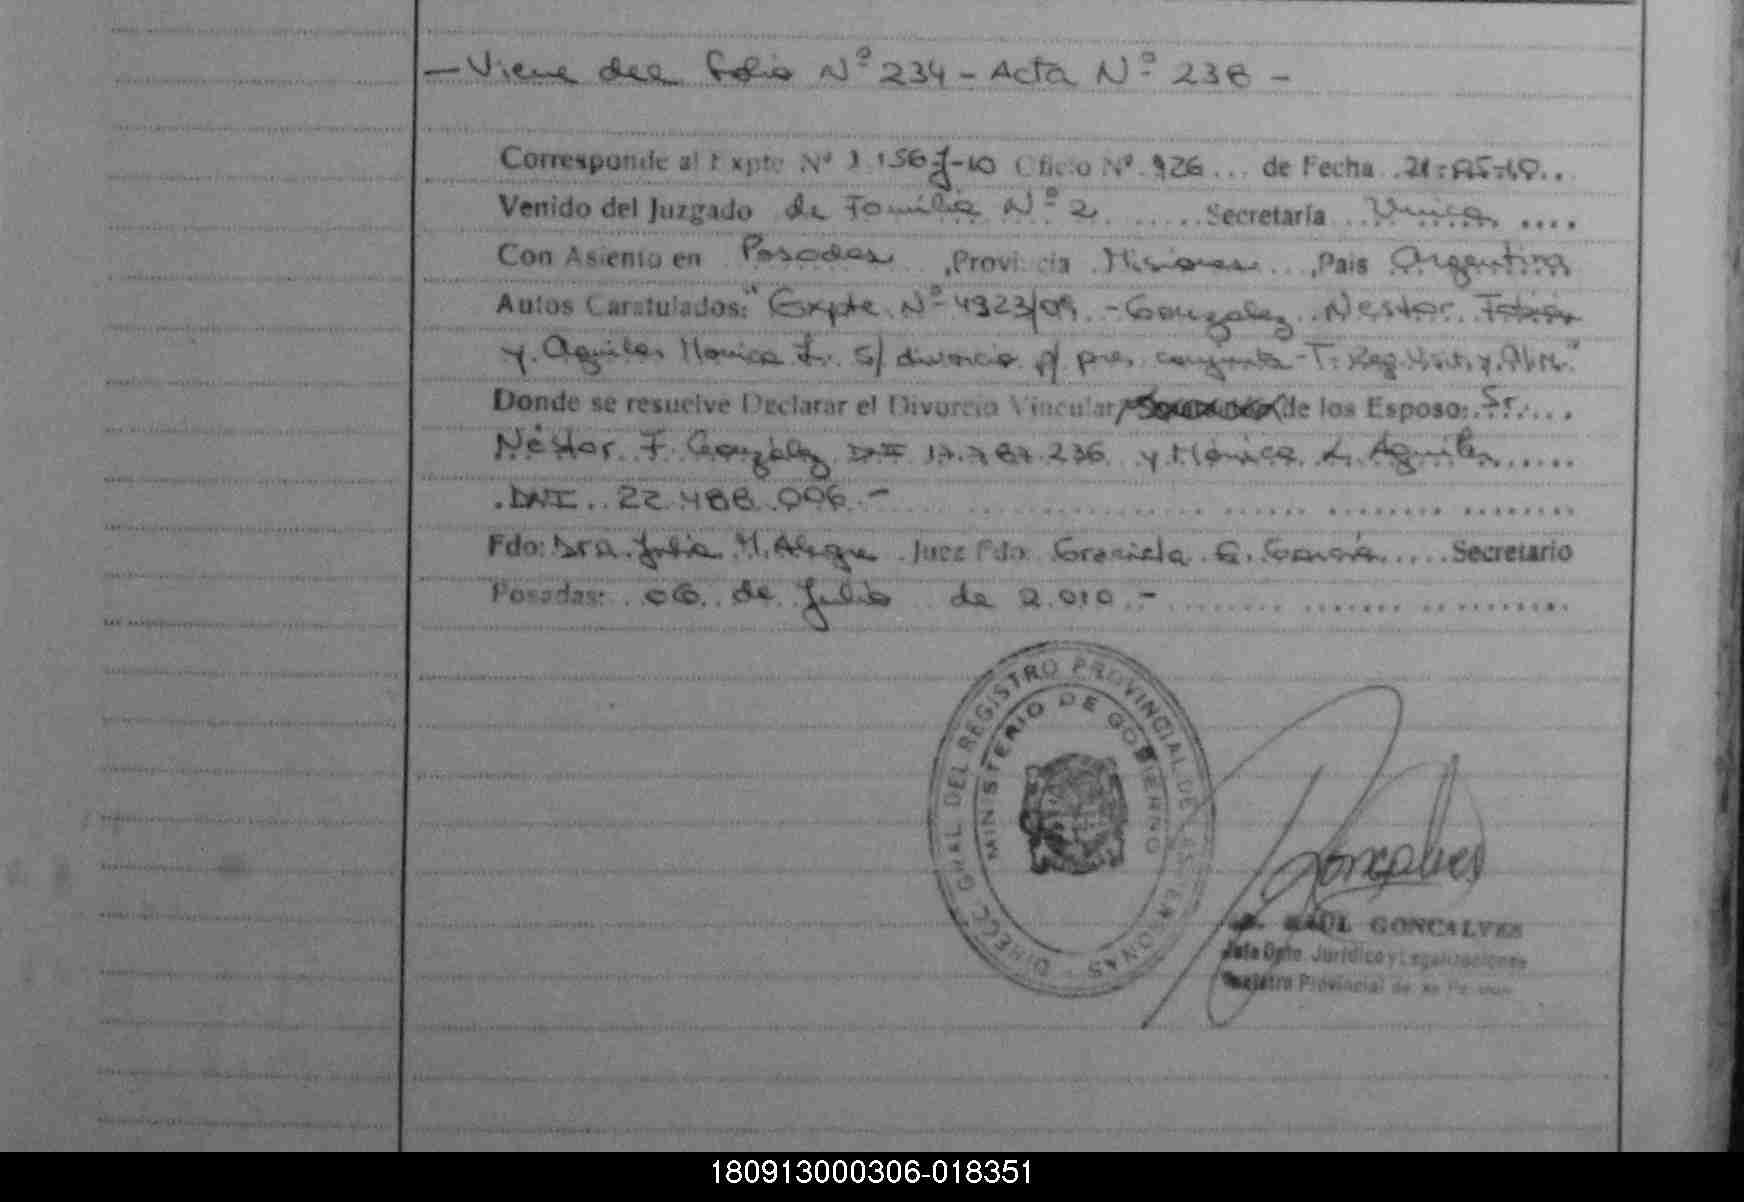 - Viene del folio Nº 234 - Acta Nº 238 -
Corresponde al Expte Nº 1156 J-10 Oficio Nº 926 ... de Fecha 21-05-10..
Venido del Juzgado de Familia Nº 2 ..... Secretaría Unica ....
Con Asiento en Posadas ,Provincia Misiones ... ,Pais Argentina
Autos Caratulados: "Expte. Nº 4923/09 - Gonzalez Nestor Fabián
y Aguilar Monica L. s/ divorcio p/ pres. conjunta - T.
Donde se resuelve Declarar el Divorcio Vincular de los Esposo: Sr.
Néstor F. González 17.787.236 y Mónica L. Aguilar .....
DNI 22.488.006.-
Fdo: Dra. Julia M. Alegre Juez Fdo: Graciela E. García .... Secretario
Posadas: 06 de Julio de 2.010.-
DIRECC. GRAL DEL REGISTRO PROVINCIAL DE LAS PERSONAS
MINISTERIO DE GOBIERNO
Goncalves
RAUL GONCALVES
Jefe Dpto. Jurídico y Legalizaciones
Registro Provincial de
180913000306-018351